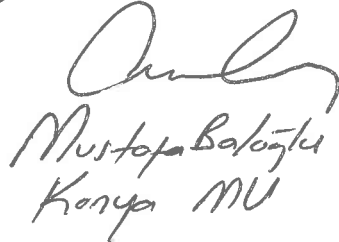 Mustafa Baloğlu
Konya MU